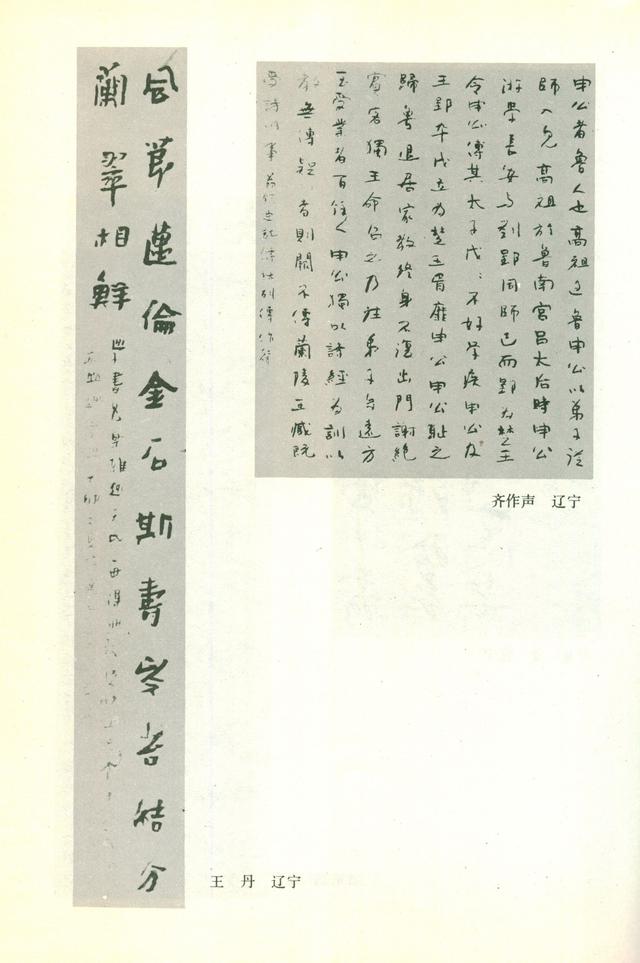 申公者魯人也高祖過魯申公以弟子從
師入見高祖於魯南宮呂太后時申公
游學長安與劉郢同師已而郢為楚王
令申公傅其太子戊〻不好學疾申公及
王郢卒戊立為楚王胥靡申公申公恥之
歸魯退居家教終身不復出門謝絕
賓客獨王命召之乃往弟子自遠方
至受業者百餘人申公獨以詩經為訓以
教無傳疑〻者則闕不傳蘭陵王臧既
受詩以事
齐作声 辽宁
風節邁倫金石斯壽岑苔結分
蘭翠相鮮
王丹 辽宁